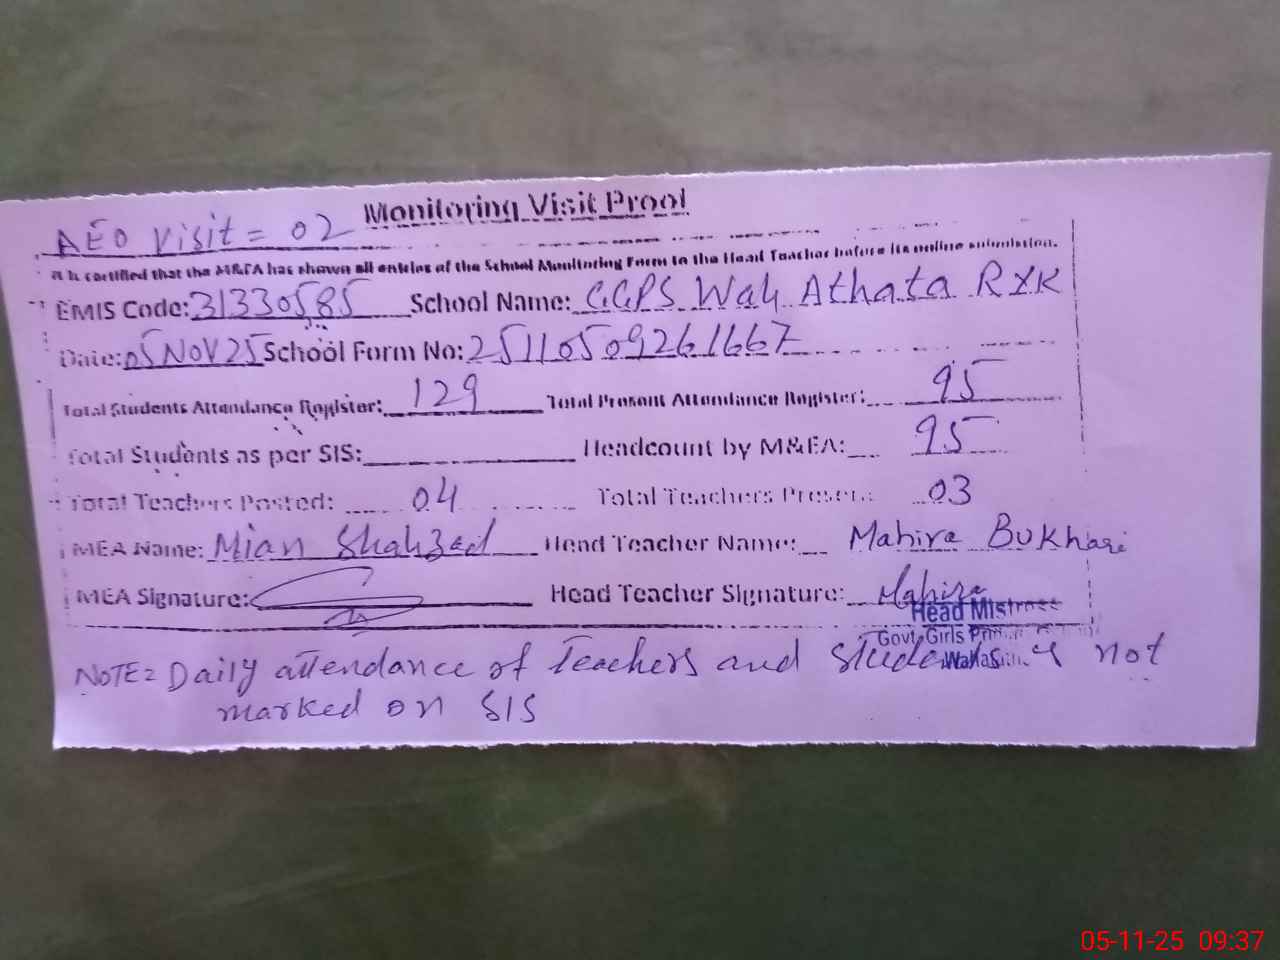 Monitoring Visit Proof
AEO Visit = 02
It is certified that the M&EA has shown all entries of the School Monitoring Form to the Head Teacher before its online submission.
EMIS Code: 31330585 School Name: GGPS Wah Athata RYK
Date: 05 Nov 25 School Form No: 25110509261667
Total Students Attendance Register: 129 Total Present Attendance Register: 95
Total Students as per SIS: Headcount by M&EA: 95
Total Teachers Posted: 04 Total Teachers Present: 03
MEA Name: Mian Shahzad Head Teacher Name: Mahira Bukhari
MEA Signature: Head Teacher Signature: Mahira
Head Mistress
Govt. Girls
NOTE = Daily attendance of Teachers and not
marked on SIS
05-11-25 09:37